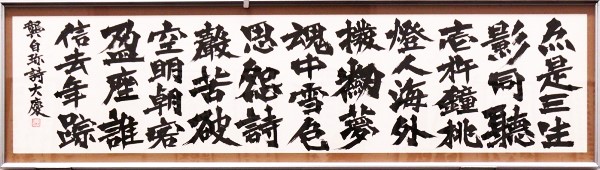 亦是三生
影同聽
壱杵鐘挑
燈人海外
撥劒夢
魂中雪色
恩怨詩
聲苦破
空明朝客
盈座誰
信去年踪
龔自珍詩大慶